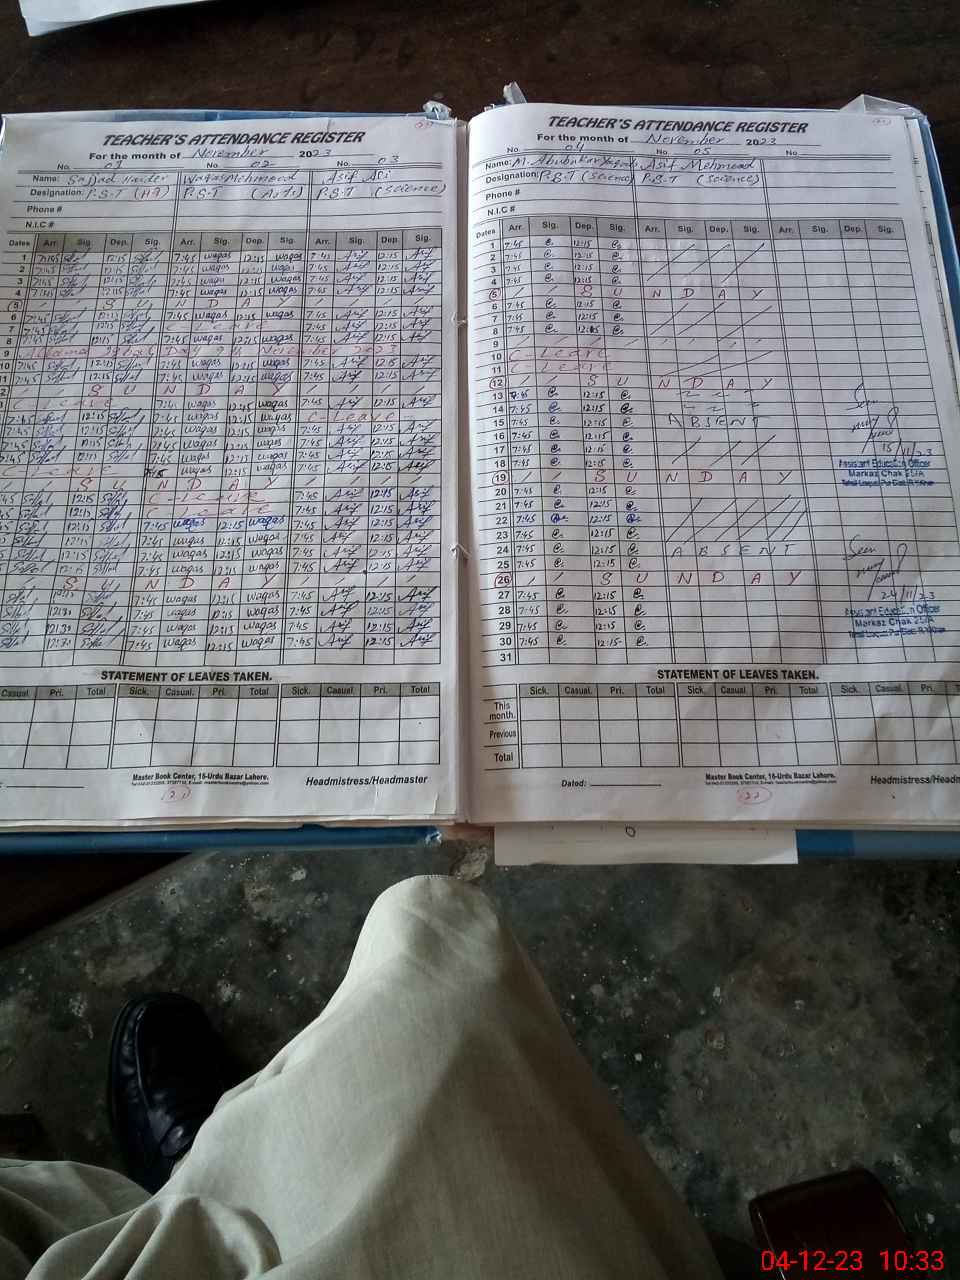 TEACHER'S ATTENDANCE REGISTER
For the month of November 2023
No. 01 No. 02 No. 03
Name: Sajjad Haider Waqas Mehmood Asif Ali
Designation: P.S.T (Arts) P.S.T (Science)
Phone #
N.I.C #
Dates Arr. Sig. Dep. Sig. Arr. Sig. Dep. Sig. Arr. Sig. Dep. Sig.
1 7:45 12:15 7:45 waqas 12:15 waqas 7:45 Asif 12:15 Asif
2 7:45 12:15 7:45 waqas 12:15 waqas 7:45 Asif 12:15 Asif
3 7:45 12:15 7:45 waqas 12:15 waqas 7:45 Asif 12:15 Asif
4 7:45 12:15 7:45 waqas 12:15 waqas 7:45 Asif 12:15 Asif
5 S U N D A Y
6 7:45 12:15 7:45 waqas 12:15 waqas 7:45 Asif 12:15 Asif
7 7:45 12:15 C-Leave 7:45 Asif 12:15 Asif
8 7:45 12:15 7:45 waqas 12:15 waqas 7:45 Asif 12:15 Asif
9 Allama Iqbal Day 9th November 2023
10 7:45 12:15 7:45 waqas 12:15 waqas 7:45 Asif 12:15 Asif
11 7:45 12:15 7:45 waqas 12:15 waqas 7:45 Asif 12:15 Asif
S U N D A Y
C-Leave 7:45 waqas 12:15 waqas 7:45 Asif 12:15 Asif
7:45 12:15 7:45 waqas 12:15 waqas C-Leave
7:45 12:15 7:45 waqas 12:15 waqas 7:45 Asif 12:15 Asif
7:45 12:15 7:45 waqas 12:15 waqas 7:45 Asif 12:15 Asif
7:45 12:15 7:45 waqas 12:15 waqas 7:45 Asif 12:15 Asif
C-Leave waqas 12:15 waqas 7:45 Asif 12:15 Asif
S U N D A Y
12:15 C-Leave 7:45 Asif 12:15 Asif
12:15 C-Leave 7:45 Asif 12:15 Asif
12:15 7:45 waqas 12:15 waqas 7:45 Asif 12:15 Asif
12:15 7:45 waqas 12:15 waqas 7:45 Asif 12:15 Asif
12:15 7:45 waqas 12:15 waqas 7:45 Asif 12:15 Asif
12:15 7:45 waqas 12:15 waqas 7:45 Asif 12:15 Asif
S U N D A Y
7:45 waqas 12:15 waqas 7:45 Asif 12:15 Asif
12:30 7:45 waqas 12:15 waqas 7:45 Asif 12:15 Asif
12:30 7:45 waqas 12:15 waqas 7:45 Asif 12:15 Asif
12:30 7:45 waqas 12:15 waqas 7:45 Asif 12:15 Asif
STATEMENT OF LEAVES TAKEN.
Casual. Pri. Total Sick. Casual. Pri. Total Sick. Casual. Pri. Total
Master Book Center, 16-Urdu Bazar Lahore.
Headmistress/Headmaster
TEACHER'S ATTENDANCE REGISTER
For the month of November 2023
No. 04 No. 05 No.
Name: M. Abubakar Asif Mehmood
Designation: P.S.T (Science) P.S.T (Science)
Phone #
N.I.C #
Dates Arr. Sig. Dep. Sig. Arr. Sig. Dep. Sig. Arr. Sig. Dep. Sig.
1 7:45 12:15
2 7:45 12:15
3 7:45 12:15
4 7:45 12:15
5 S U N D A Y
6 7:45 12:15
7 7:45 12:15
8 7:45 12:15
9
10 C-Leave
11 C-Leave
12 S U N D A Y
13 7:45 12:15
14 7:45 12:15
15 7:45 12:15 ABSENT
16 7:45 12:15
17 7:45 12:15
18 7:45 12:15
19 S U N D A Y
20 7:45 12:15
21 7:45 12:15
22 7:45 12:15
23 7:45 12:15
24 7:45 12:15 ABSENT
25 7:45 12:15
26 S U N D A Y
27 7:45 12:15
28 7:45 12:15
29 7:45 12:15
30 7:45 12:15
31
Seen
15/11/23
Assistant Education Officer
Markaz Chak 25/A
Seen
24/11/23
Assistant Education Officer
Markaz Chak 25/A
STATEMENT OF LEAVES TAKEN.
Sick. Casual. Pri. Total Sick. Casual. Pri. Total Sick. Casual. Pri.
This month.
Previous
Total
Dated:
Master Book Center, 16-Urdu Bazar Lahore.
Headmistress/Headm
04-12-23 10:33